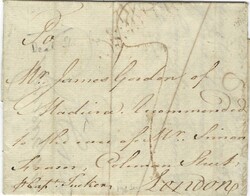 To
Mr. James Gordon of
Madeira recommended
to the care of Mr. Simon
Coleman Street
London